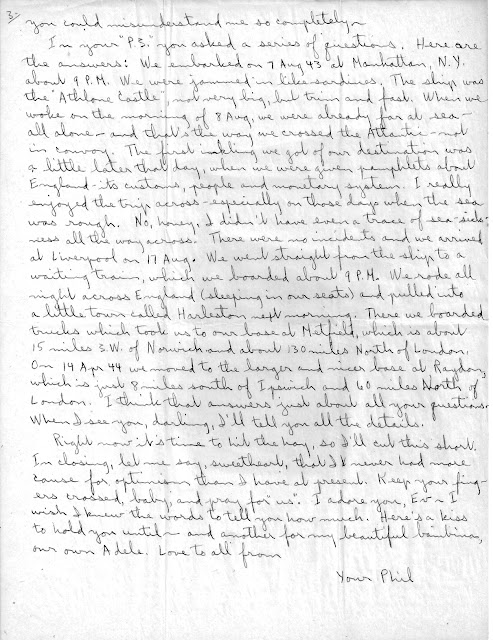 3-
you could misunderstand me so completely~
In your "P.S." you asked a series of questions. Here are
the answers: We embarked on 7 Aug 43 at Manhattan, N.Y.
about 9 P.M. We were jammed in like sardines. The ship was
the "Athlone Castle", not very big, but trim and fast. When we
woke on the morning of 8 Aug, we were already far at sea -
all alone - and that's the way we crossed the Atlantic - not
in convoy. The first inkling we got of our destination was
a little later that day, when we were given pamphlets about
England - its customs, people and monetary system. I really
enjoyed the trip across - especially on those days when the sea
was rough. No, honey, I didn't have even a trace of sea-sick-
ness all the way across. There were no incidents and we arrived
at Liverpool on 17 Aug. We went straight from the ship to a
waiting train, which we boarded about 9 P.M. We rode all
night across England (sleeping in our seats) and pulled into
a little town called Harleston next morning. There we boarded
trucks which took us to our base at Metfield, which is about
15 miles S.W. of Norwich and about 130 miles North of London.
On 14 Apr 44 we moved to the larger and nicer base at Raydon,
which is just 8 miles south of Ipswich and 60 miles North of
London. I think that answers just about all your questions.
When I see you, darling, I'll tell you all the details.
Right now it's time to hit the hay, so I'll cut this short.
In closing, let me say, sweetheart, that I never had more
cause for optimism than I have at present. Keep your fing-
ers crossed, baby, and pray for "us". I adore you, Ev ~ I
wish I knew the words to tell you how much. Here's a kiss
to hold you until ~ and another for my beautiful bambina,
our own Adele. Love to all from
Your Phil